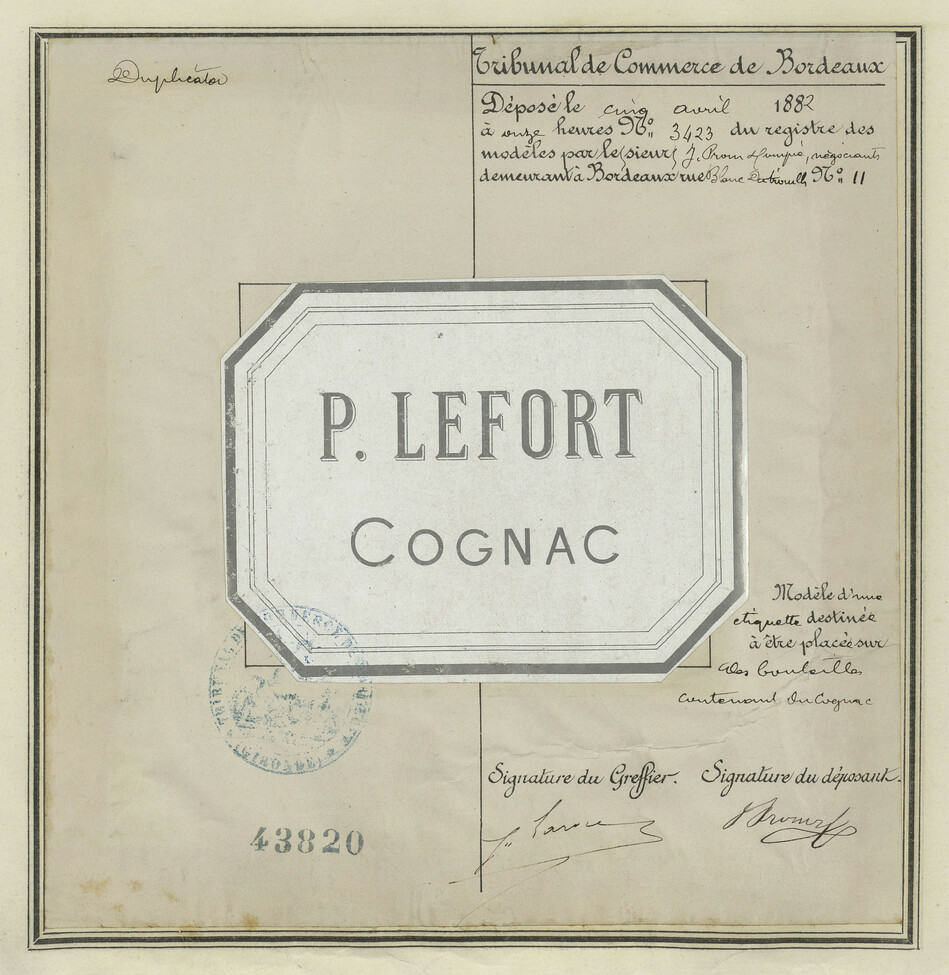 Duplicata
Tribunal de Commerce de Bordeaux
Déposé le cinq avril 1882
à onze heures No. 3423 du registre des
modèles par le(sieur) J. Prom négociants
demeurant à Bordeaux rue Blanc Dutrouilh No. 11
P. LEFORT
COGNAC
Modèle d'une
etiquette destinée
à être placée sur
des bouteilles
contenant du Cognac
TRIBUNAL DE COMMERCE DE BORDEAUX
(GIRONDE)
Signature du Greffier. Signature du déposant.
43820